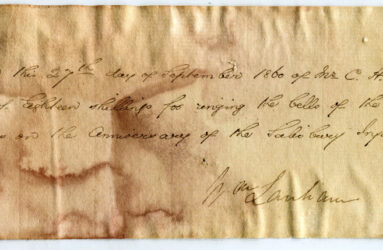 this 27th day of September 1860 of Mr C. H
Eighteen shillings for ringing the bells of the
on the Anniversary of the Salisbury Inf
Wm Lanham